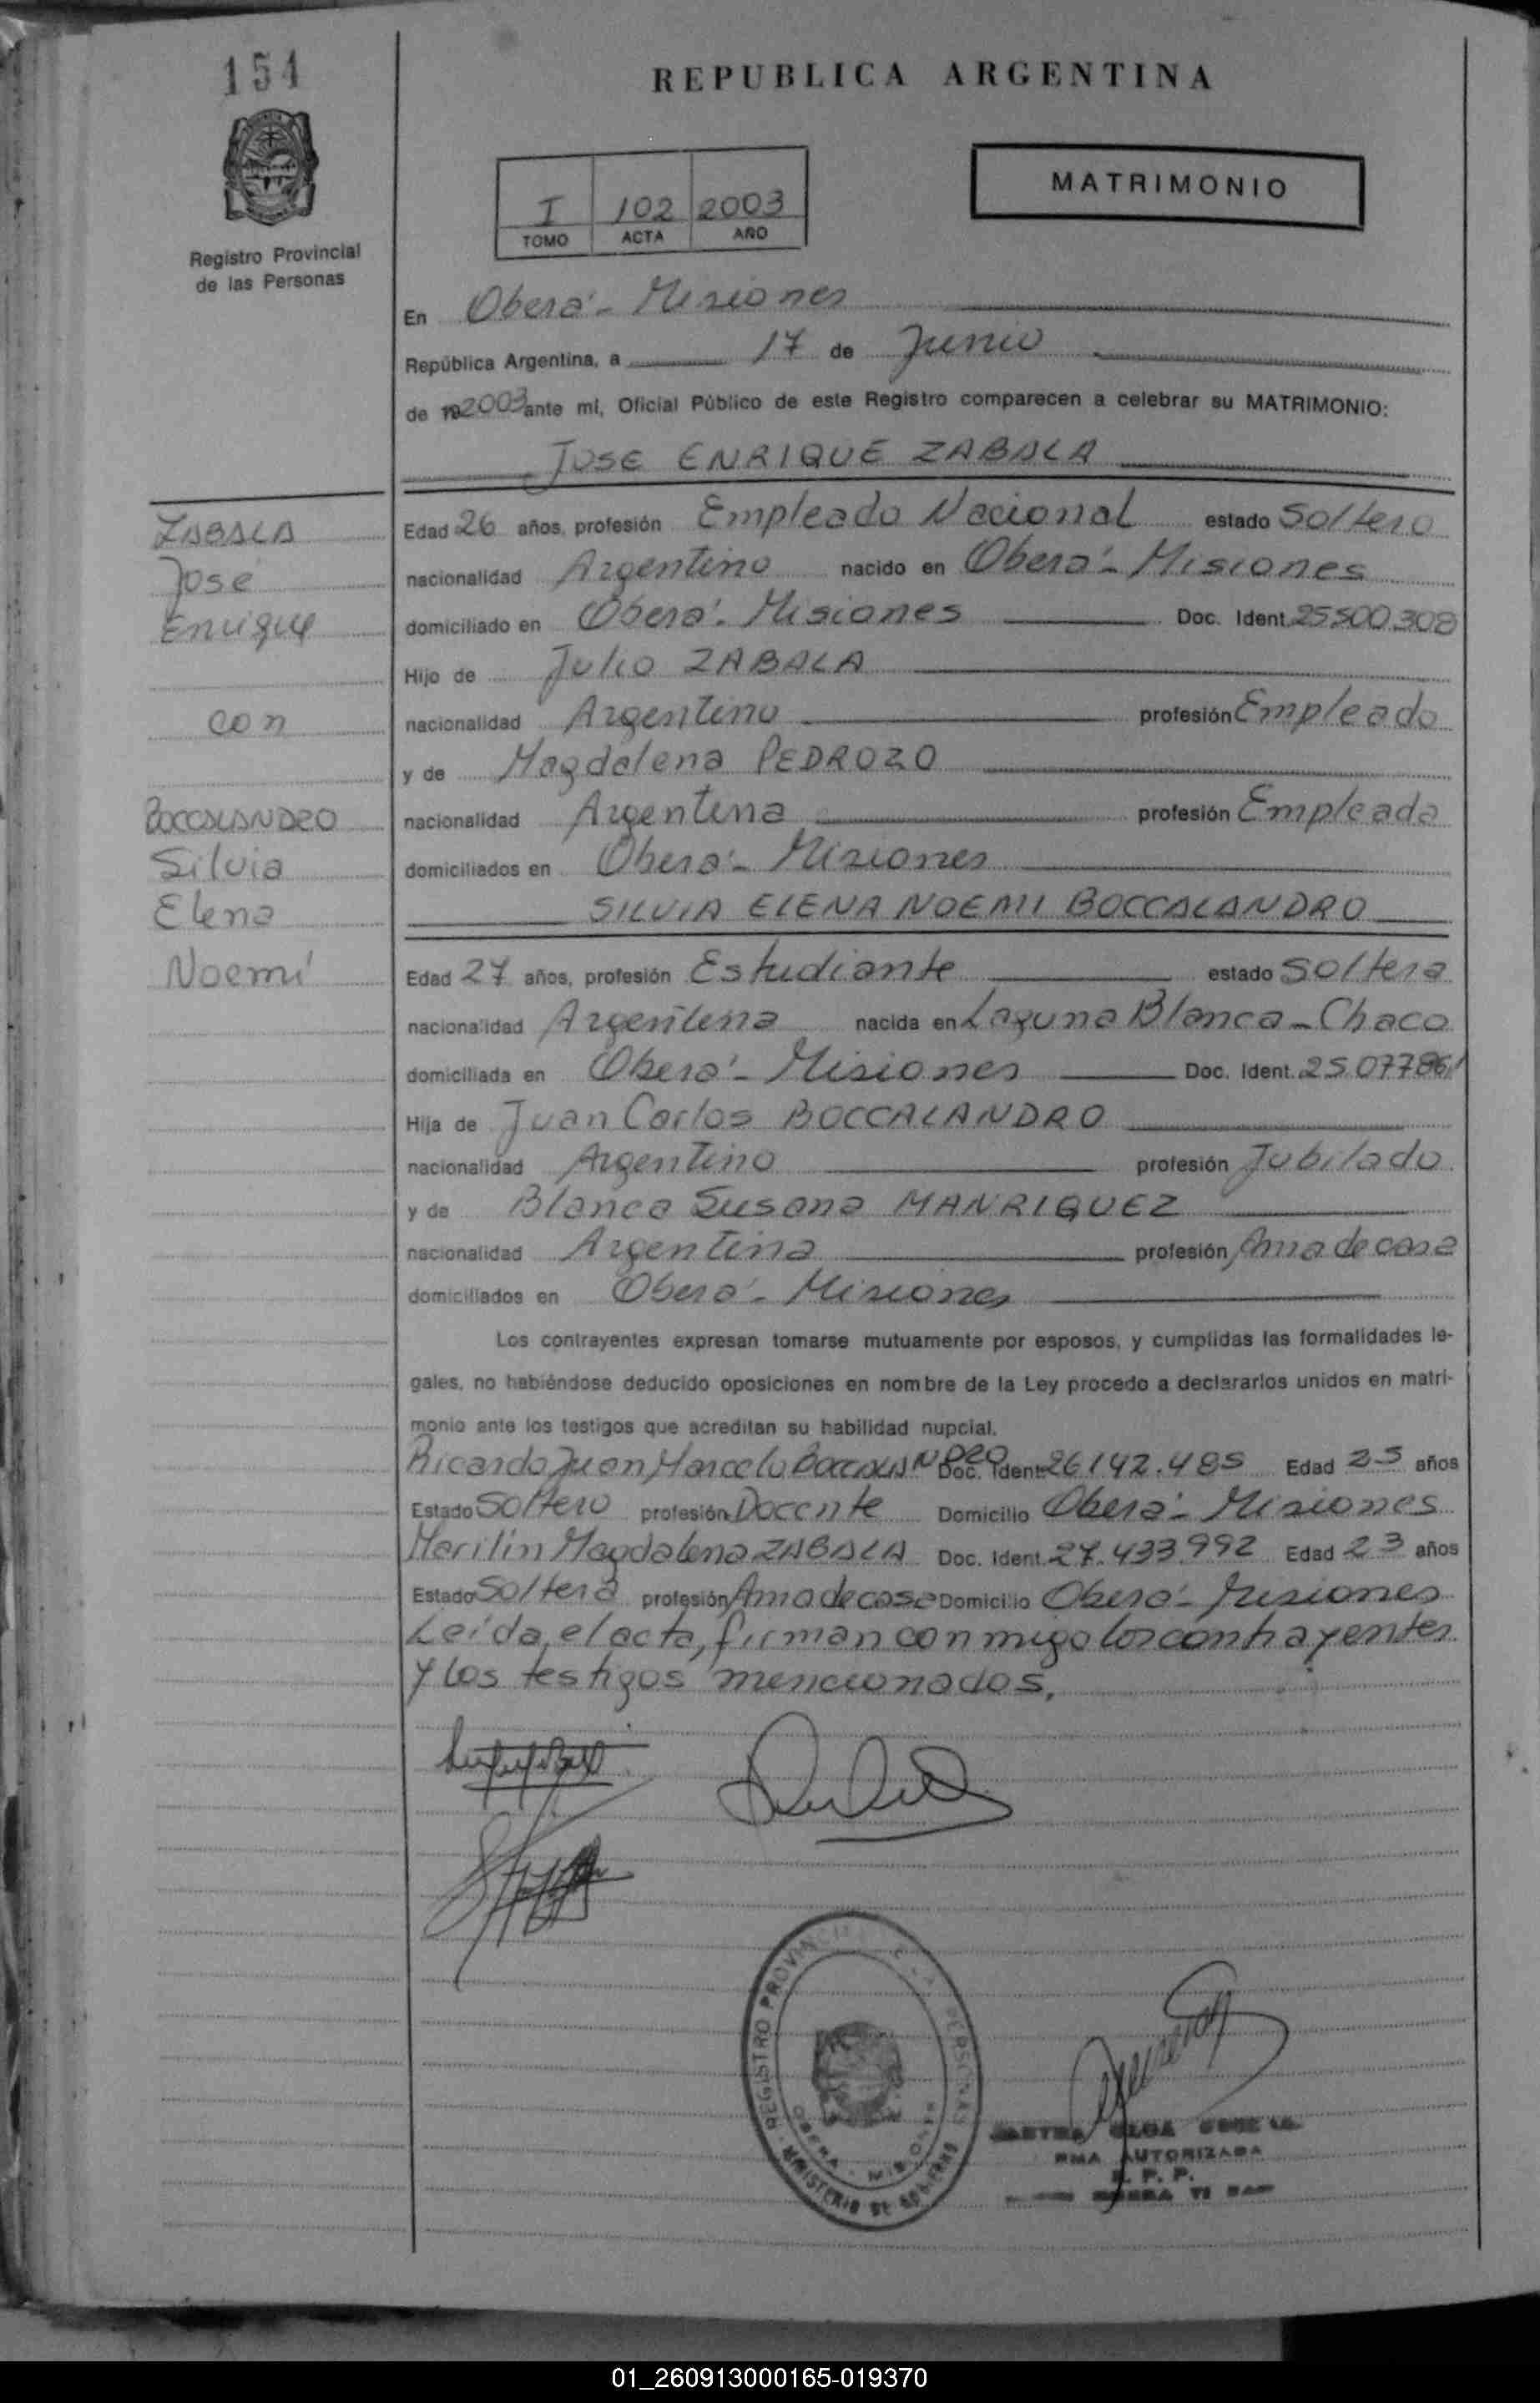 151
REPUBLICA ARGENTINA
MATRIMONIO
I 102 2003
TOMO ACTA AÑO
Registro Provincial
de las Personas
En Oberá - Misiones
República Argentina, a 17 de Junio
de 192003 ante mi, Oficial Público de este Registro comparecen a celebrar su MATRIMONIO:
JOSE ENRIQUE ZABALA
ZABALA
José
Enrique
con
BOCCALANDRO
Silvia
Elena
Noemí
Edad 26 años, profesión Empleado Nacional estado Soltero
nacionalidad Argentino nacido en Oberá - Misiones
domiciliado en Oberá - Misiones Doc. Ident. 25.500.308
Hijo de Julio ZABALA
nacionalidad Argentino profesión Empleado
y de Magdalena PEDROZO
nacionalidad Argentina profesión Empleada
domiciliados en Oberá - Misiones
SILVIA ELENA NOEMI BOCCALANDRO
Edad 27 años, profesión Estudiante estado Soltera
nacionalidad Argentina nacida en Laguna Blanca - Chaco
domiciliada en Oberá - Misiones Doc. Ident. 25.077.861
Hija de Juan Carlos BOCCALANDRO
nacionalidad Argentino profesión Jubilado
y de Blanca Susana MANRIQUEZ
nacionalidad Argentina profesión Ama de casa
domiciliados en Oberá - Misiones
Los contrayentes expresan tomarse mutuamente por esposos, y cumplidas las formalidades le-
gales, no habiéndose deducido oposiciones en nombre de la Ley procedo a declararlos unidos en matri-
monio ante los testigos que acreditan su habilidad nupcial.
Ricardo Juan Marcelo BOCCALANDRO Doc. Ident. 26.142.485 Edad 25 años
Estado Soltero profesión Docente Domicilio Oberá - Misiones
Marilin Magdalena ZABALA Doc. Ident. 27.433.992 Edad 23 años
Estado Soltera profesión Ama de casa Domicilio Oberá - Misiones
Leída, el acta, firman conmigo los contrayentes
y los testigos mencionados.
REGISTRO PROVINCIAL DE LAS PERSONAS
OBERA - MISIONES
MINISTERIO DE GOBIERNO
OLGA
AUTORIZADA
R. P. P.
01_260913000165-019370